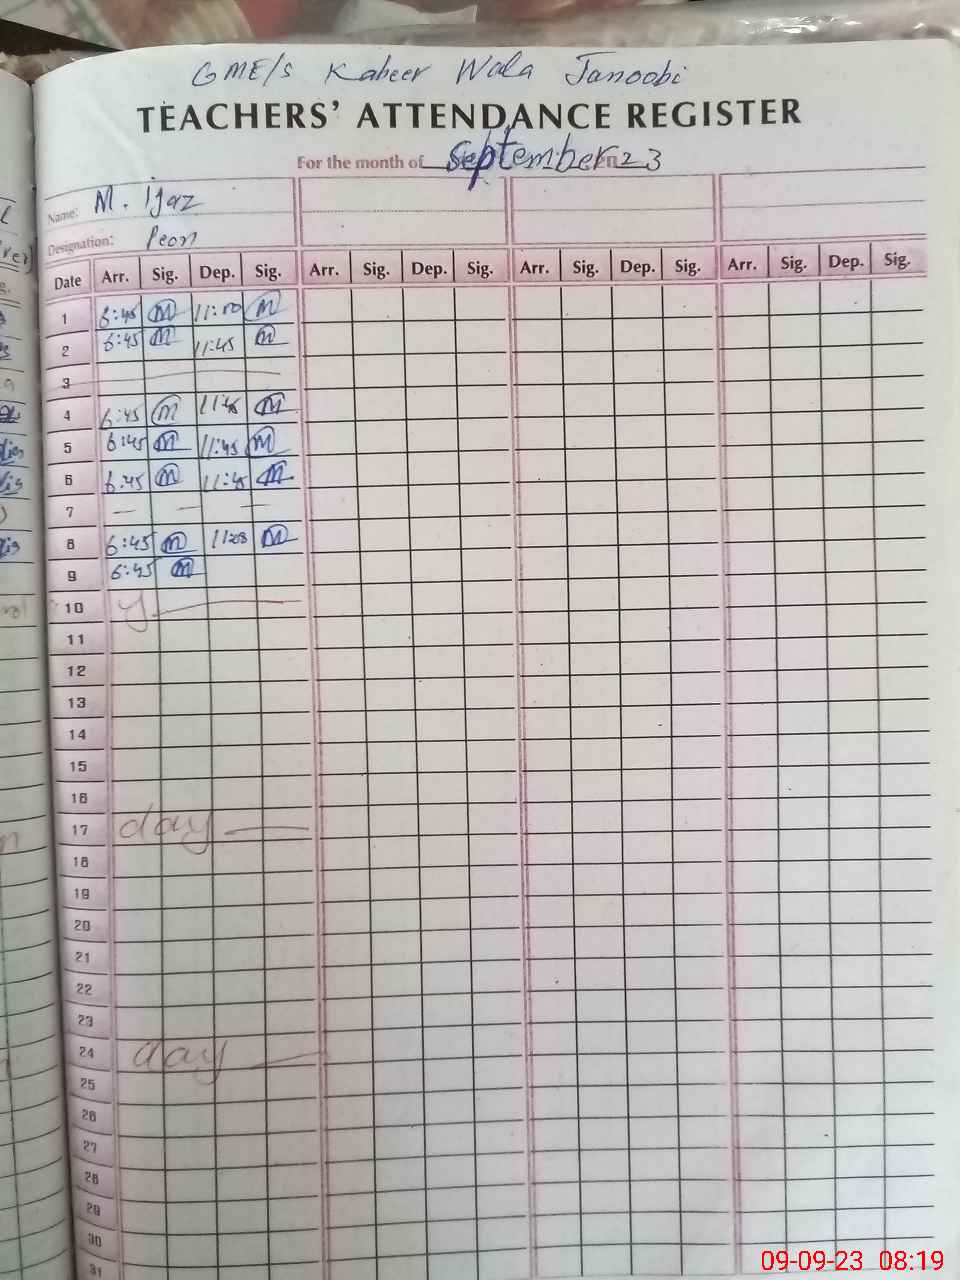 GME/S Kabeer Wala Janoobi
TEACHERS' ATTENDANCE REGISTER
For the month of September 23
Name: M. Ijaz
Designation: Peon
Date Arr. Sig. Dep. Sig. Arr. Sig. Dep. Sig. Arr. Sig. Dep. Sig. Arr. Sig. Dep. Sig.
1 6:45 M M
2 6:45 M 11:45 M
3
4 6:45 M 11:45 M
5 6:45 M 11:45 M
6 6:45 M 11:45 M
7 — — —
8 6:45 M M
9 6:45 M
10 y
11
12
13
14
15
16
17 day
18
19
20
21
22
23
24 day
25
26
27
28
29
30
31
09-09-23 08:19